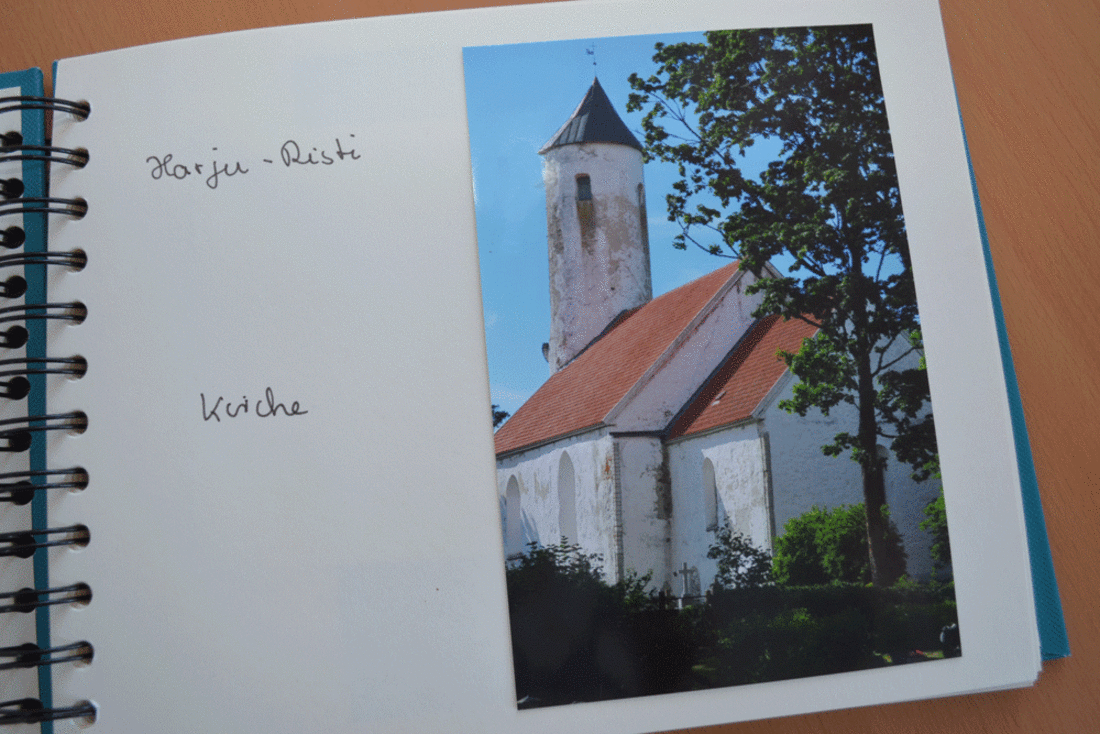 Harju-Risti
Kirche